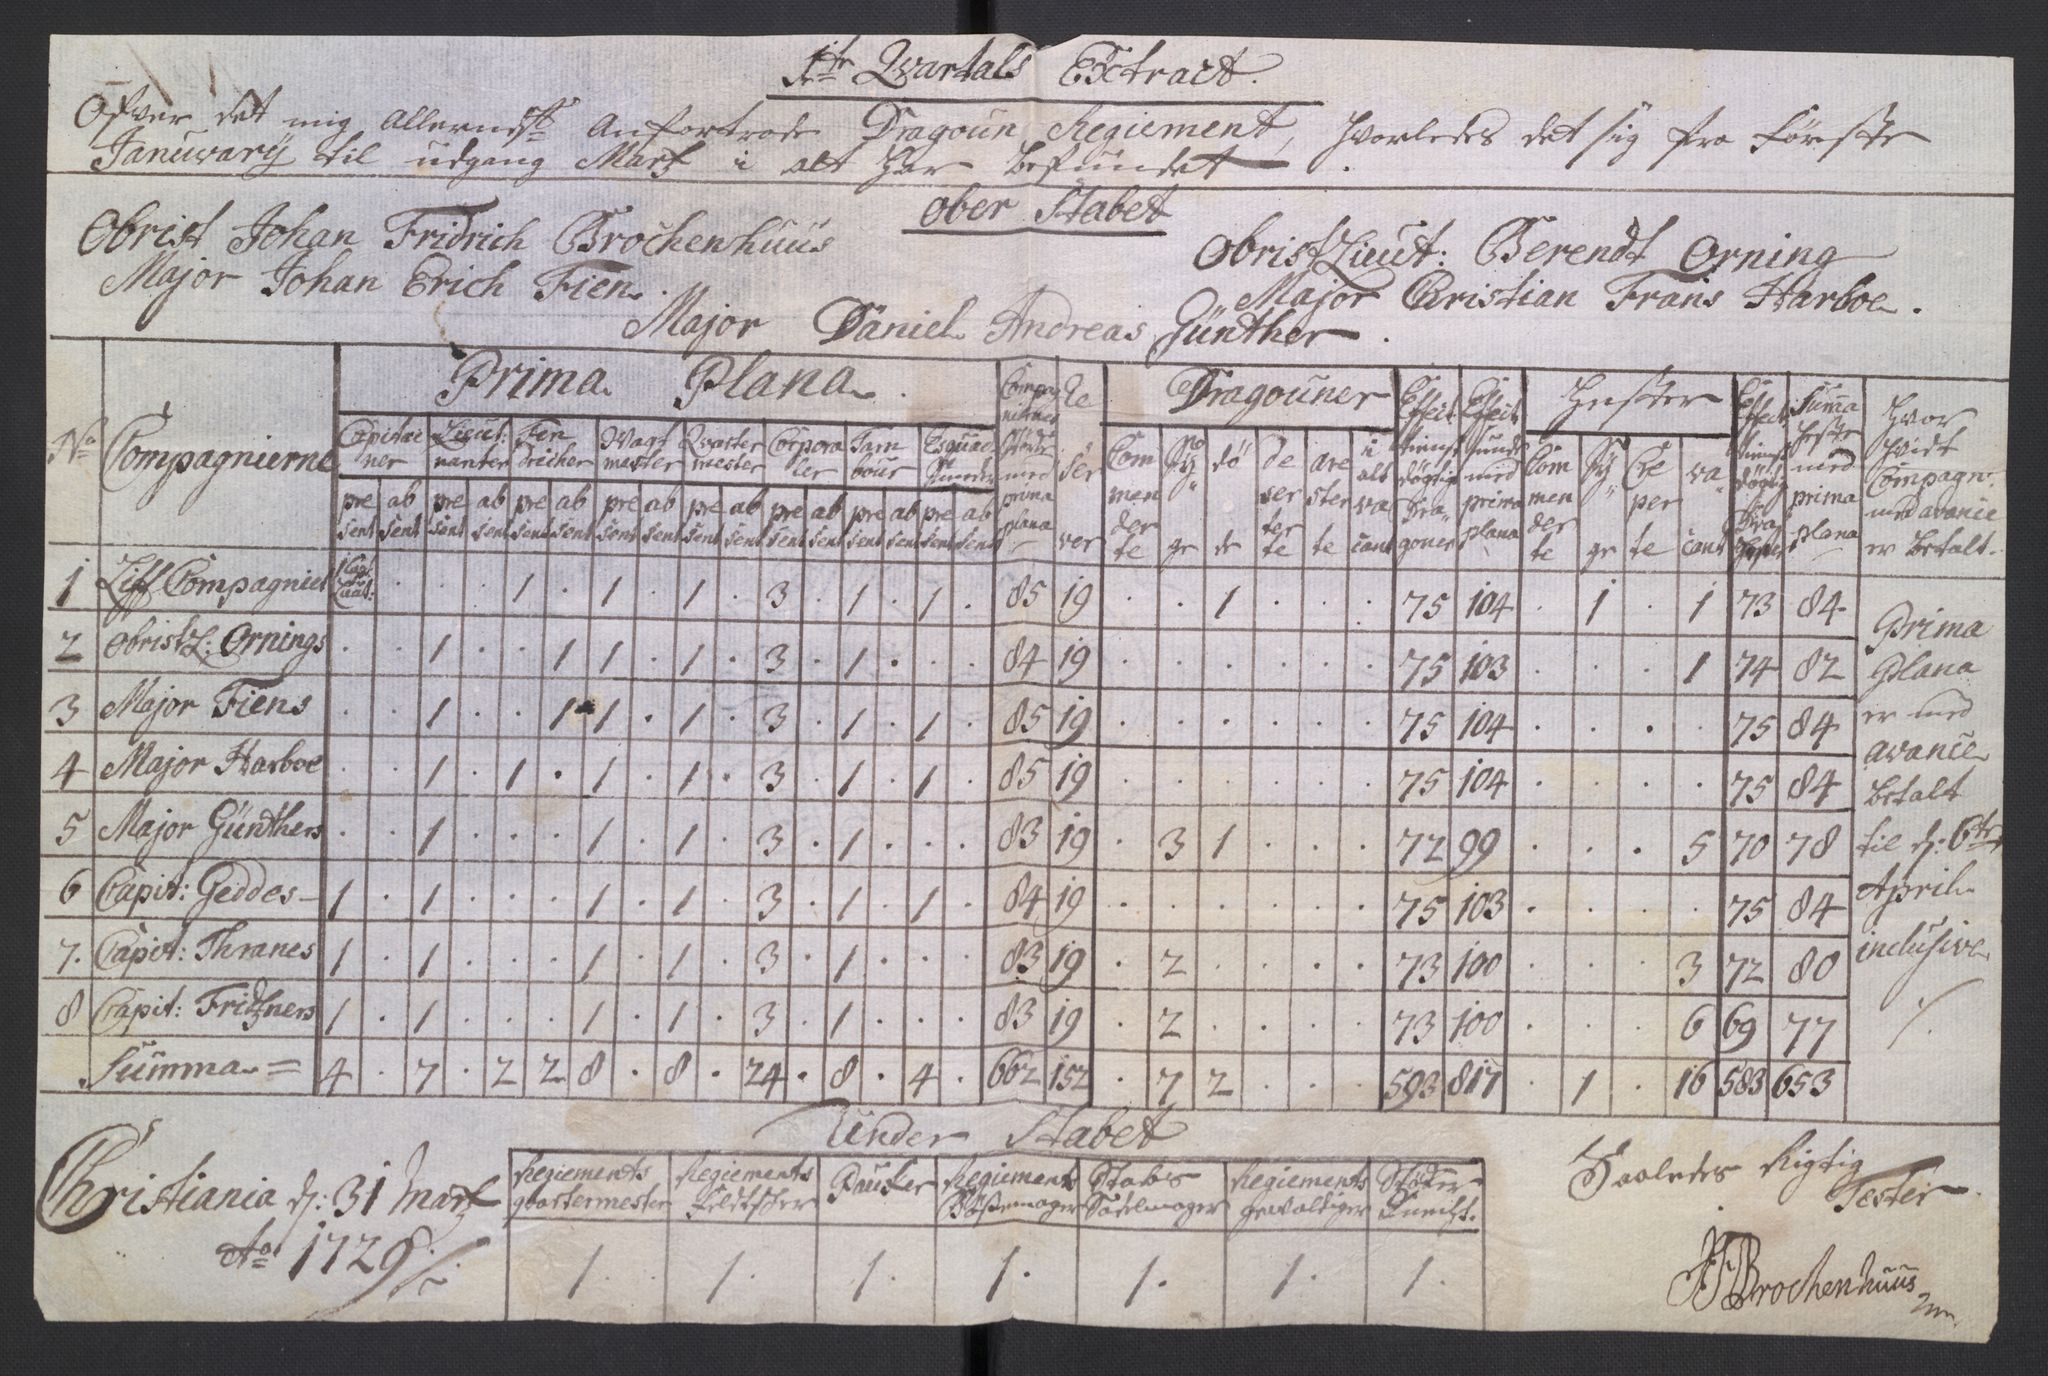 1te Qvartals Extract.
Ofver det mig Allernd:st Anfortrode Dragoun Regiement, hvorledes det sig fra Første
Januvarÿ til udgang Martz i alt har befundet.
Ober Stabet
Obrist Johan Fridrich Brochenhuus
Obrist Lieut: Berendt Orning
Major Johan Erich Fien.
Major Christian Frans Harboe.
Major Daniel Andreas Günther.
Prima Plana.
Compagniernes Styrke med prima plana
Reserver
Dragouner
Effect tienst dögtig Dragoner
Effect Sunde med prima plana
Hester
Effect tienst dögtig Drag Heste
Summa Heste med prima plana
Hvor vidt Compagn: med avance er betalt.
No Compagnierne
Capitainer Lieut:nanter Fendricher Vagtmester Qvartermester Corporaler Tambour Esquad: Smeder
present absent present absent present absent present absent present absent present absent present absent present absent
Commenderte Syge döde deserterte aresterte i alt vacant
Commenderte Syge Creperte vacant
1 Liff Compagniet 1 Cap: Lieut: . . . 1 . 1 . 1 . 3 . 1 . 1 . 85 19 . . 1 . . . 75 104 . 1 . 1 73 84
2 ObristL: Ornings . . 1 . . 1 1 . 1 . 3 . 1 . . . 84 19 . . . . . . 75 103 . . . 1 74 82
3 Major Fiens . . 1 . . 1 1 . 1 . 3 . 1 . 1 . 85 19 . . . . . . 75 104 . . . . 75 84
4 Major Harboe . . 1 . 1 . 1 . 1 . 3 . 1 . 1 . 85 19 . . . . . . 75 104 . . . . 75 84
5 Major Günthers . . 1 . . . 1 . 1 . 3 . 1 . . . 83 19 . 3 1 . . . 72 99 . . . 5 70 78
6 Capit: Geddes 1 . 1 . . . 1 . 1 . 3 . 1 . 1 . 84 19 . . . . . . 75 103 . . . . 75 84
7. Capit: Thranes 1 . 1 . . . 1 . 1 . 3 . 1 . . . 83 19 . 2 . . . . 73 100 . . . 3 72 80
8 Capit: Fridtzners 1 . 1 . . . 1 . 1 . 3 . 1 . . . 83 19 . 2 . . . . 73 100 . . . 6 69 77
Summa = 4 . 7 . 2 2 8 . 8 . 24 . 8 . 4 . 662 152 . 7 2 . . . 593 817 . 1 . 16 583 653
Prima
Plana
er med
avance
betalt
til d: 6te
April
inclusive
Under Stabet
Regiements qvartermester
Regiements Feldtscher
Pauker
Regiements Bössemager
Stabs Sadelmager
Regiements gevaldiger
Stöcker Knecht.
1. 1. 1. 1. 1. 1. 1.
Christiania d: 31 Martz
Ao 1729
Saaledes Rigtig
Tester
JFBrochenhuus